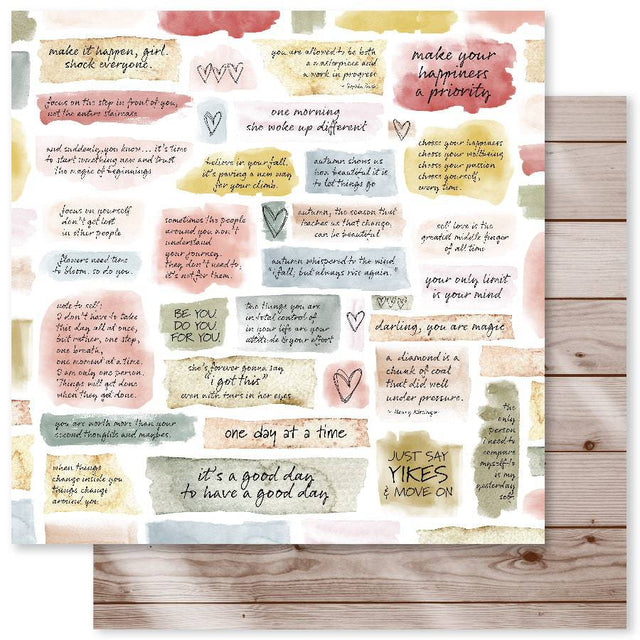 make it happen, girl.
shock everyone.
you are allowed to be both
a masterpiece and
a work in progress
make your
happiness
a priority
focus on the step in front of you,
not the entire staircase
one morning
she woke up different
and suddenly, you know... it's time
to start something new and trust
the magic of beginnings
believe in your fall,
it's paving a new way
for your climb.
autumn shows us
how beautiful it is
to let things go
choose your happiness
choose your wellbeing
choose your passion
choose yourself,
every time.
focus on yourself
don't get lost
in other people
sometimes the people
around you won't
understand
your journey.
they don't need to;
it's not for them.
autumn, the season that
teaches us that change
can be beautiful
self love is the
greatest middle finger
of all time
flowers need time
to bloom. so do you.
autumn whispered to the wind
"i fall, but always rise again."
your only limit
is your mind
note to self:
I don't have to take
this day all at once,
but rather, one step,
one breath,
one moment at a time.
I am only one person.
Things will get done
when they get done.
BE YOU.
DO YOU.
FOR YOU.
the things you are
in total control of
in your life are your
attitude & your effort
darling, you are magic
she's forever gonna say
"i got this"
even with tears in her eyes
a diamond is a
chunk of coal
that did well
under pressure.
- Henry Kissinger
the
only
person
i need to
compare
myself to
is my
yesterday
self.
you are worth more than your
second thoughts and maybes.
one day at a time
JUST SAY
YIKES
& MOVE ON
when things
change inside you
things change
around you.
it's a good day
to have a good day